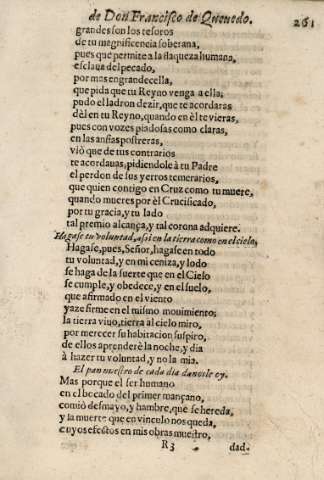 de Don Francisco de Queuedo. 261
grandes son los tesoros
de tu magnificencia soberana,
pues que permite a la flaqueza humana,
esclaua del pecado,
por mas engrandecella,
que pida que tu Reyno venga a ella;
pudo el ladron dezir, que te acordaras
dèl en tu Reyno, quando en èl te vieras,
pues con vozes piadosas como claras,
en las ansias postreras,
viò que de tus contrarios
te acordauas, pidiendole à tu Padre
el perdon de sus yerros temerarios,
que quien contigo en Cruz como tu muere,
quando mueres por èl Crucificado,
por tu gracia, y tu lado
tal premio alcança, y tal corona adquiere.
Hagase tu voluntad, assi en la tierra como en el cielo,
Hagase, pues, Señor, hagase en todo
tu voluntad, y en mi ceniza, y lodo
se haga de la suerte que en el Cielo
se cumple, y obedece, y en el suelo,
que afirmado en el viento
yaze firme en el mismo mouimiento;
la tierra viuo, tierra al cielo miro,
por merecer su habitacion suspiro,
de ellos aprenderè la noche, y dia
à hazer tu voluntad, y no la mia.
El pan nuestro de cada dia danosle oy.
Mas porque el ser humano
en el bocado del primer mançano,
comiò desmayo, y hambre, que se hereda,
y la muerte que en vinculo nos queda,
cuyos efectos en mis obras muestro,
R 3 dad-